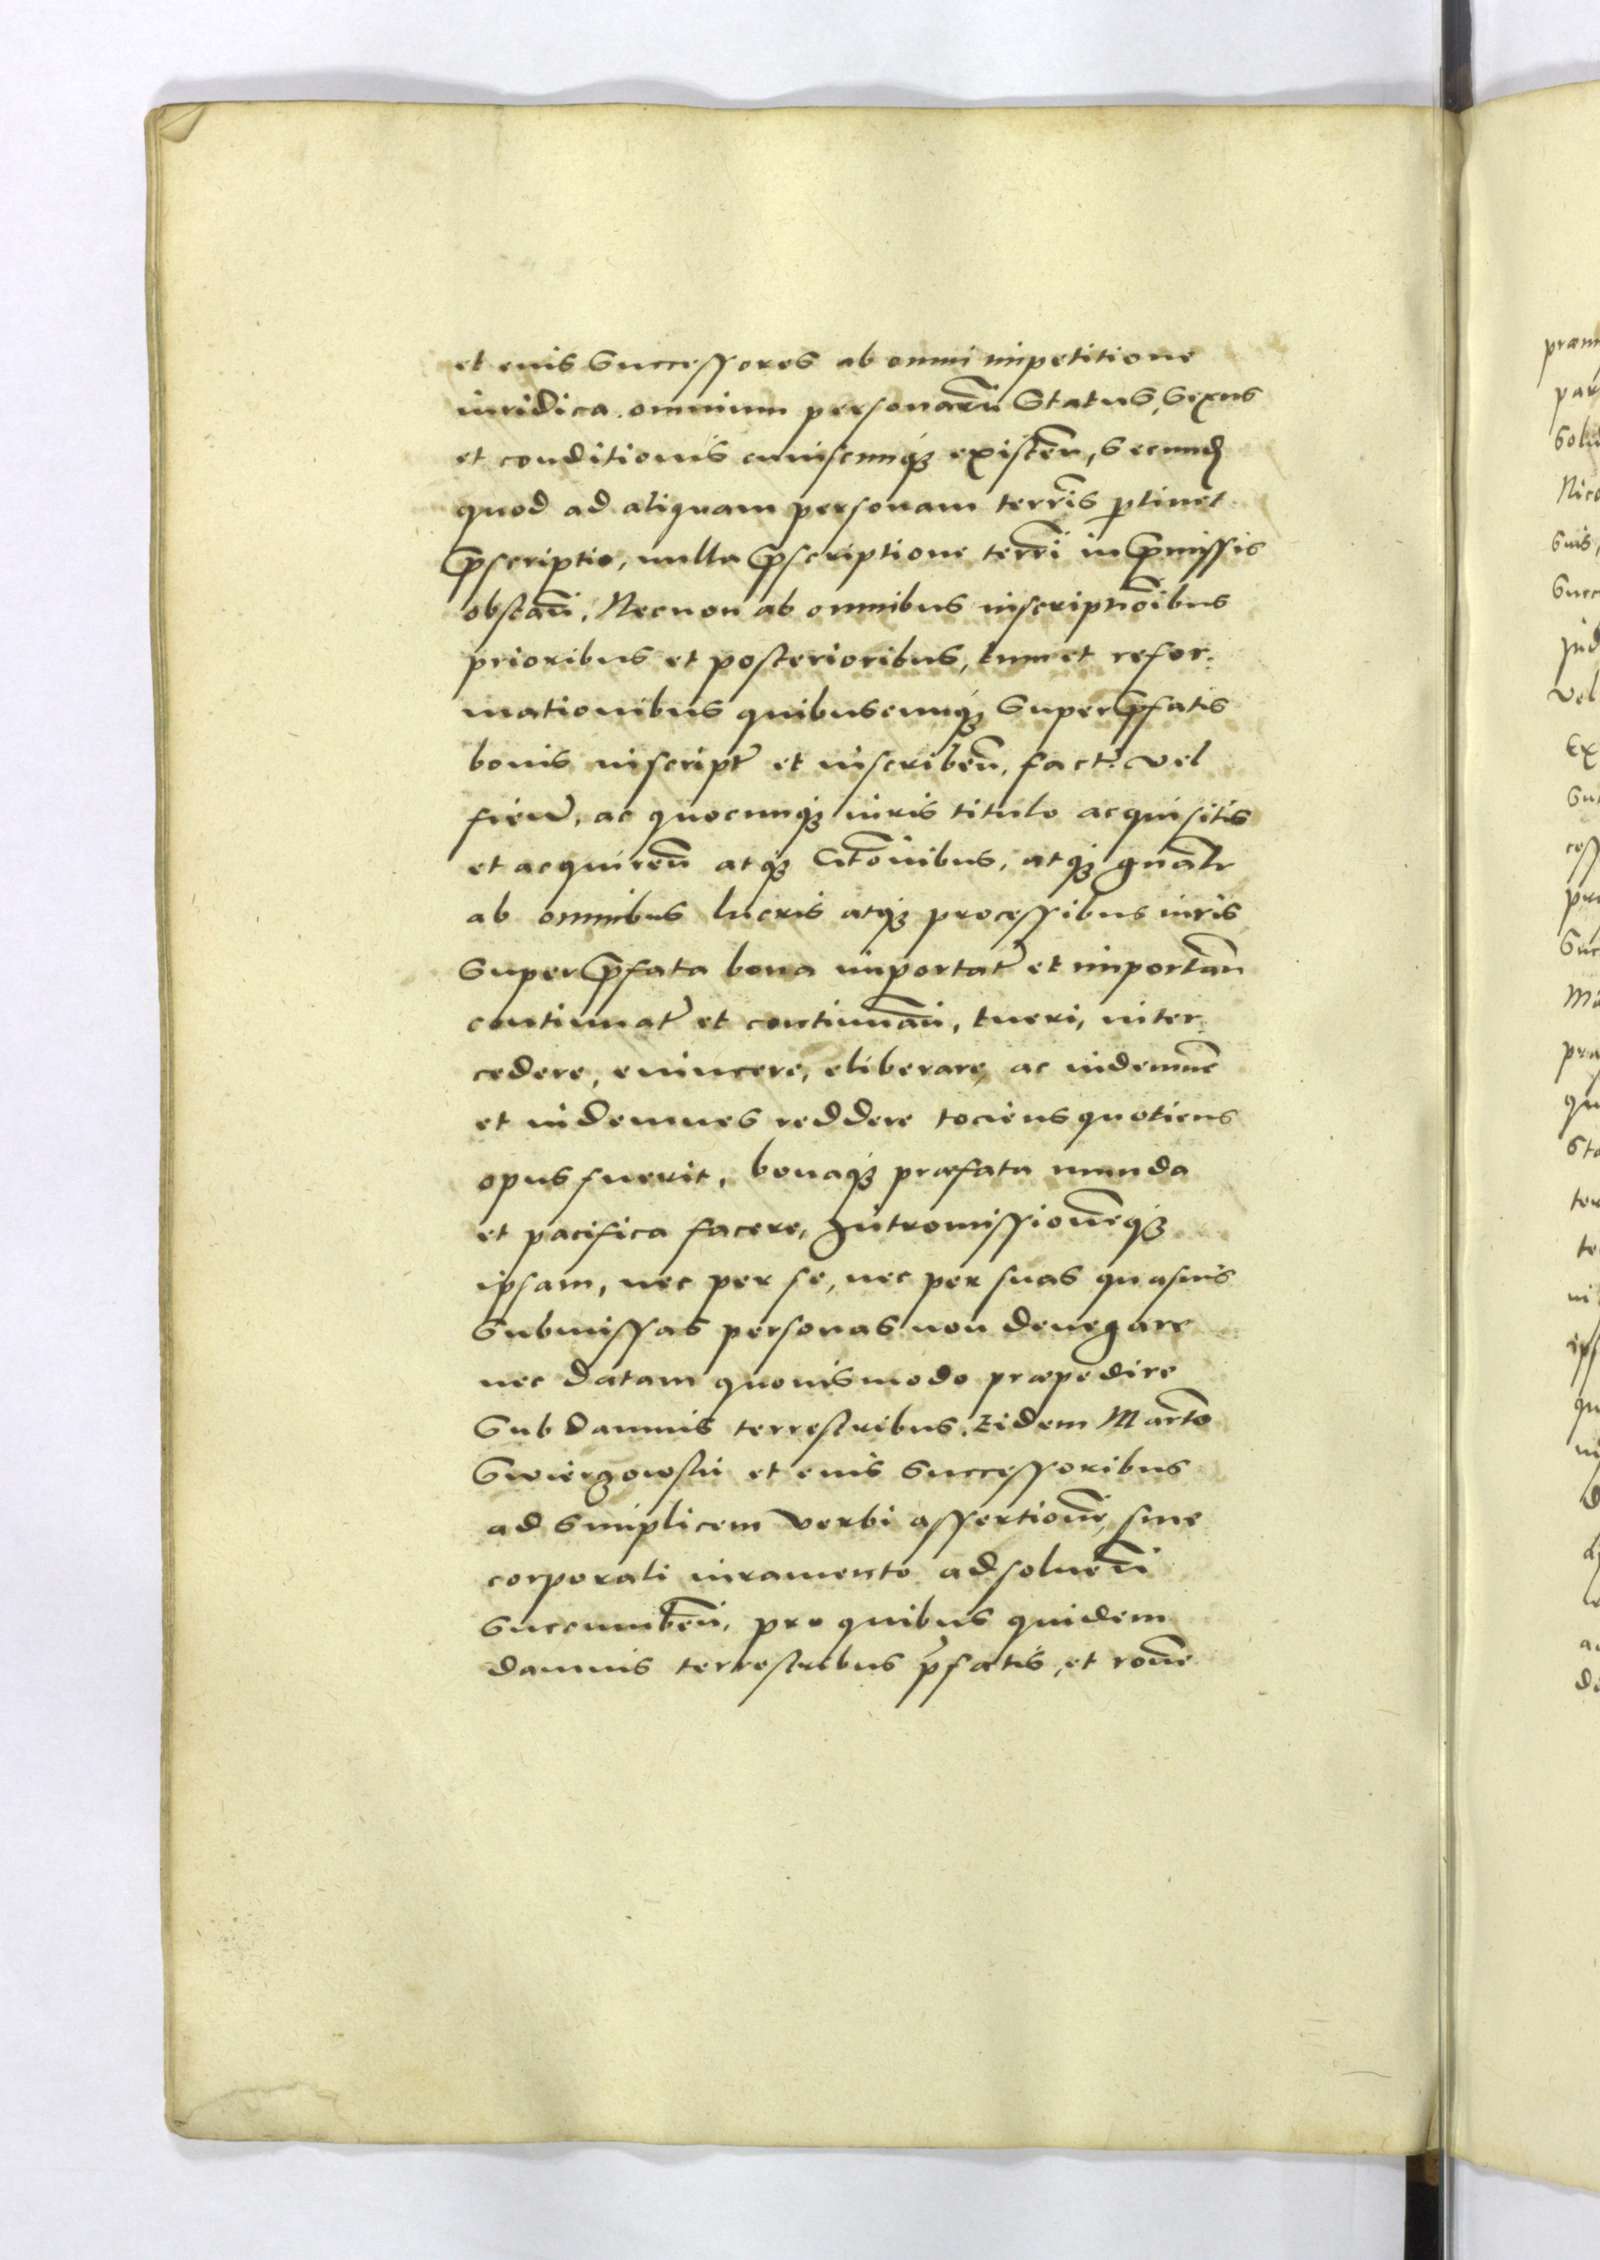 et eius Successores ab omni impetitione
iuridica omnium personarū Status, Sexus
et conditionis cuiuscunqꝫ existeñ, secundꝫ
quod ad aliquam personam terrīs ꝑtinet
p̄scriptio, nulla p̄scriptione terrī in p̄missis
obstañ. Necnon ab omnibus inscriptiōibus
prioribus et posterioribus, tum et refor:
mationibus quibuscunqꝫ Super p̄fatis
bonis inscript̃ et inscribeñ, fact̃ vel
fieñ, ac quocunqꝫ iuris titulo acquisitis
et acquireñ atqꝫ Citōnibus, atqꝫ gnãlr
ab omnibus lucris atqꝫ processibus iuris
Super p̄fata bona importat̃ et importañ
continuat̃ et continuañ, tueri, inter:
cedere, euincere, eliberare, ac indemnē
et indemnes reddere tociens quotiens
opus fuerit, bonaqꝫ præfata munda
et pacifica facere, Intromissionēqꝫ
ipsam, nec per se, nec per suas quasuis
Submissas personas non denegare
nec datam quouismodo præpedire
Sub damnis terrestribus. Eidem Martō
Swiergowski et eius Successoribus
ad Simplicem verbi assertionē, sine
corporali iuramento ad soluenī
Succumbeñ, pro quibus quidem
damnis terrestribus p̄fatis, et ronē